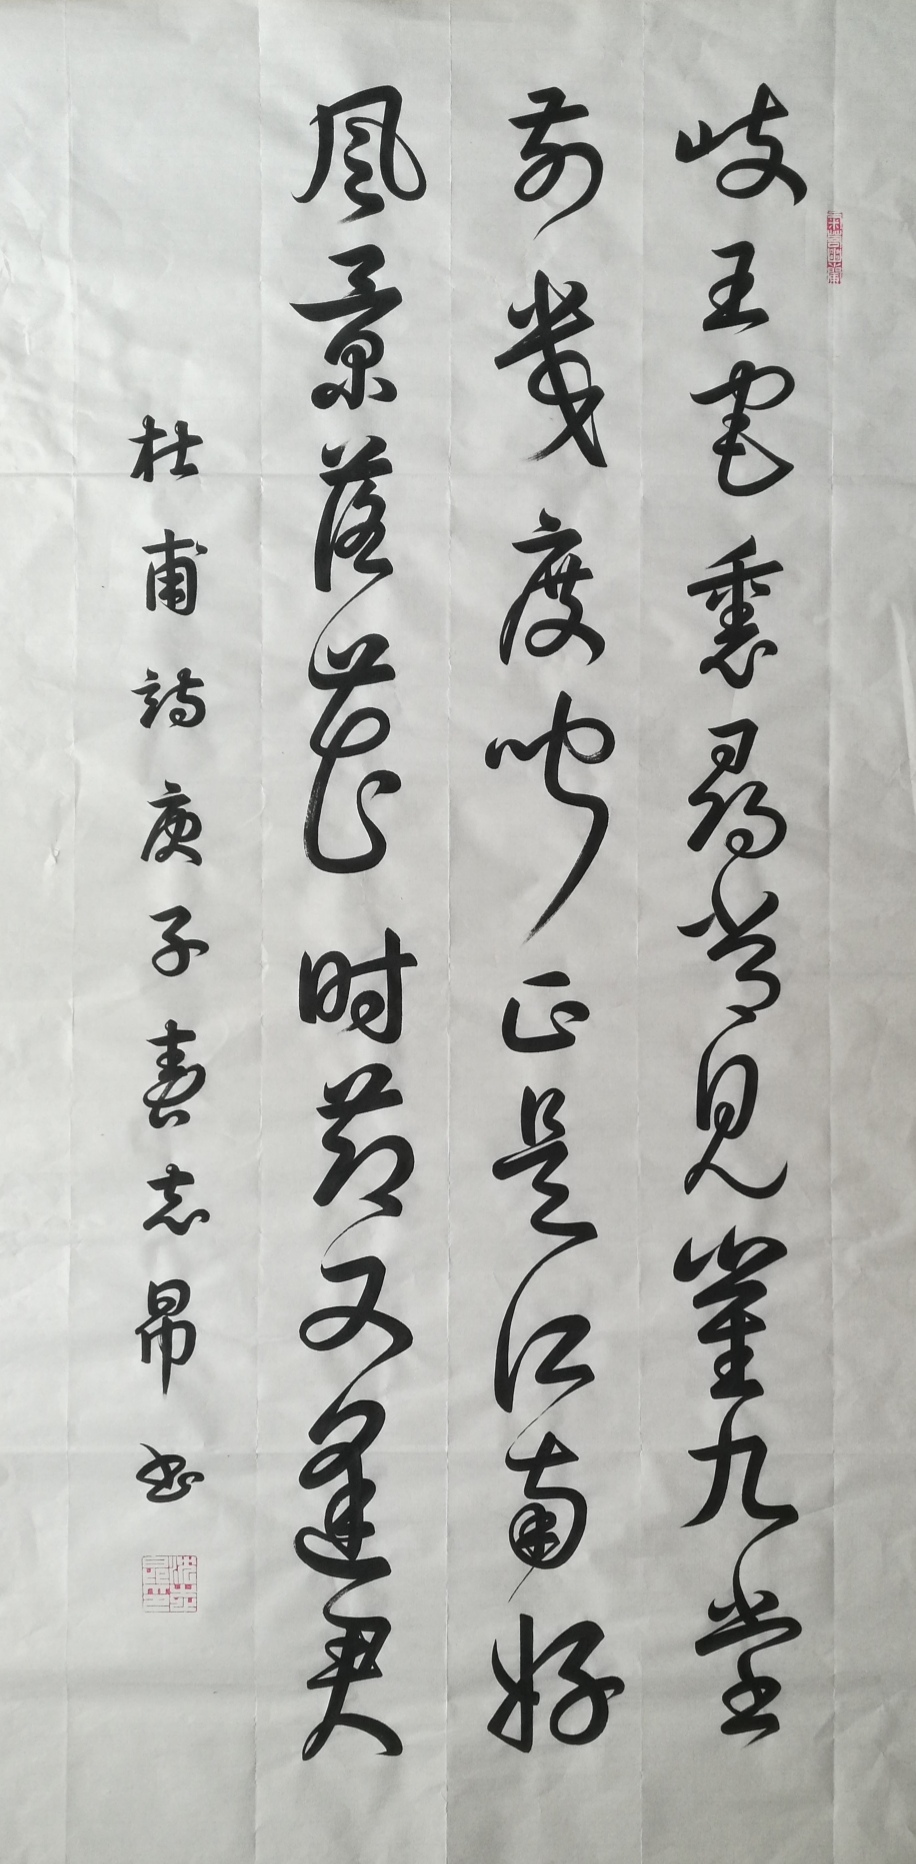 岐王宅裏尋常見崔九堂
前幾度聞正是江南好
風景落花时節又逢君
杜甫詩庚子春志昂書